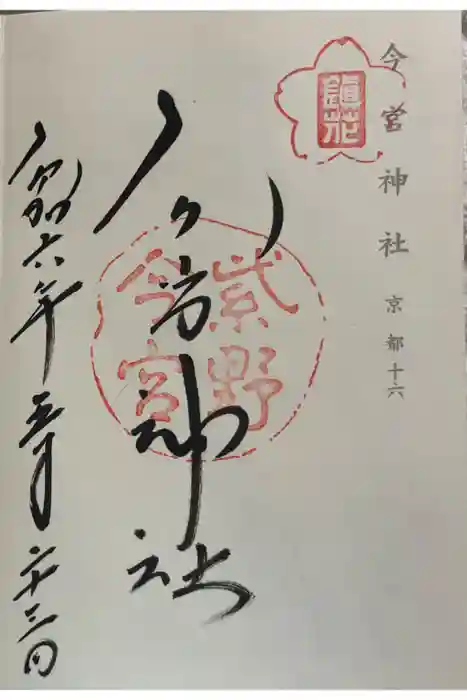 今宮神社 京都十六
鎭花
今宮神社
紫野
今宮
令和六年五月二十三日